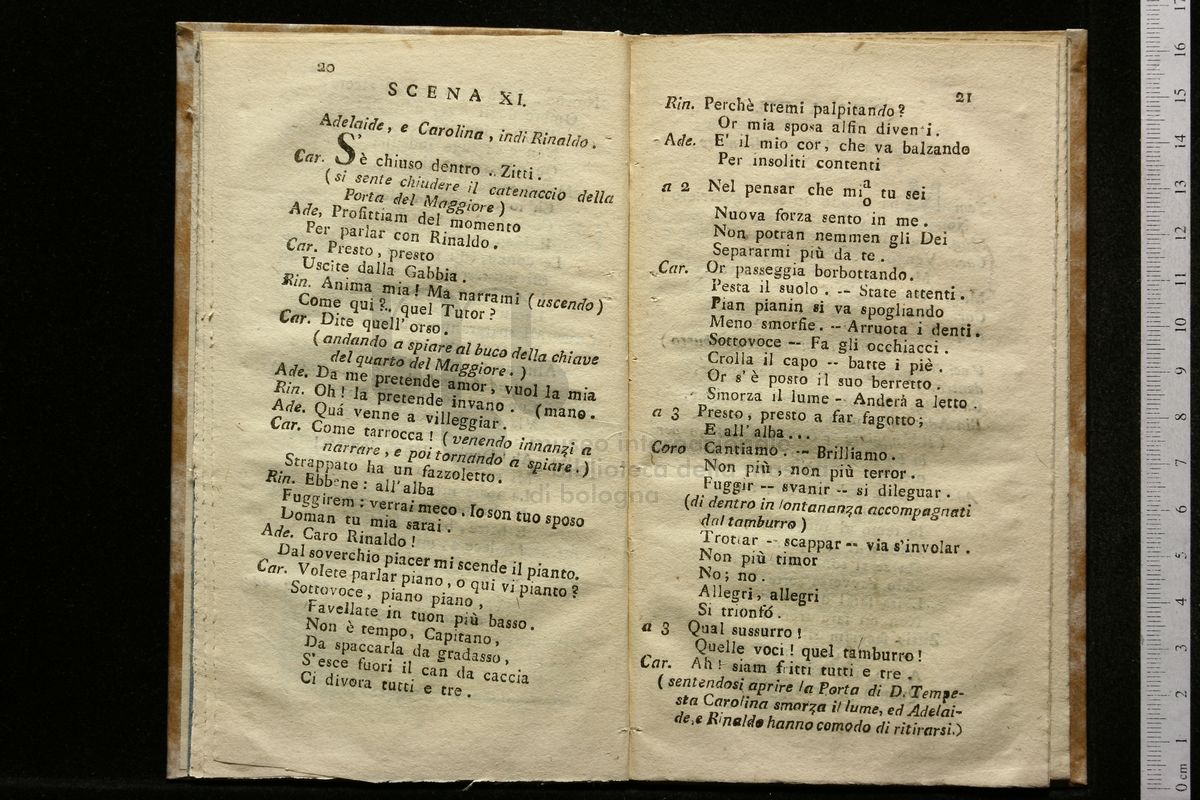 20
SCENA XI.
Adelaide, e Carolina, indi Rinaldo.
Car. S'è chiuso dentro .. Zitti.
(si sente chiudere il catenaccio della
Porta del Maggiore)
Ade, Profittiam del momento
Per parlar con Rinaldo.
Car. Presto, presto
Uscite dalla Gabbia.
Rin. Anima mia! Ma narrami (uscendo)
Come qui?.. quel Tutor?
Car. Dite quell' orso.
(andando a spiare al buco della chiave
del quarto del Maggiore.)
Ade. Da me pretende amor, vuol la mia
Rin. Oh! la pretende invano. (mano.
Ade. Quá venne a villeggiar.
Car. Come tarrocca! (venendo innanzi a
narrare, e poi tornando a spiare.)
Strappato ha un fazzoletto.
Rin. Ebbene: all'alba
Fuggirem: verrai meco. Io son tuo sposo
Doman tu mia sarai.
Ade. Caro Rinaldo!
Dal soverchio piacer mi scende il pianto.
Car. Volete parlar piano, o qui vi pianto?
Sottovoce, piano piano,
Favellate in tuon più basso.
Non è tempo, Capitano,
Da spaccarla da gradasso,
S'esce fuori il can da caccia
Ci divora tutti e tre.
21
Rin. Perchè tremi palpitando?
Or mia sposa alfin diventi.
Ade. E' il mio cor, che va balzando
Per insoliti contenti
a 2 Nel pensar che mi a/o tu sei
Nuova forza sento in me.
Non potran nemmen gli Dei
Separarmi più da te.
Car. Or passeggia borbottando.
Pesta il suolo. -- State attenti.
Pian pianin si va spogliando
Meno smorfie. -- Arruota i denti.
Sottovoce -- Fa gli occhiacci.
Crolla il capo -- batte i piè.
Or s'è posto il suo berretto.
Smorza il lume - Anderà a letto.
a 3 Presto, presto a far fagotto;
E all'alba...
Coro Cantiamo. -- Brilliamo.
Non più, non più terror.
Fuggir -- svanir -- si dileguar.
(di dentro in lontananza accompagnati
dal tamburro)
Trottar -- scappar -- via s'involar.
Non più timor
No; no.
Allegri, allegri
Si trionfó.
a 3 Qual sussurro!
Quelle voci! quel tamburro!
Car. Ah! siam fritti tutti e tre.
(sentendosi aprire la Porta di D. Tempe-
sta Carolina smorza il lume, ed Adelai-
de, e Rinaldo hanno comodo di ritirarsi.)
museo internazionale
biblioteca della
di bologna
0 cm 1 2 3 4 5 6 7 8 9 10 11 12 13 14 15 16 17